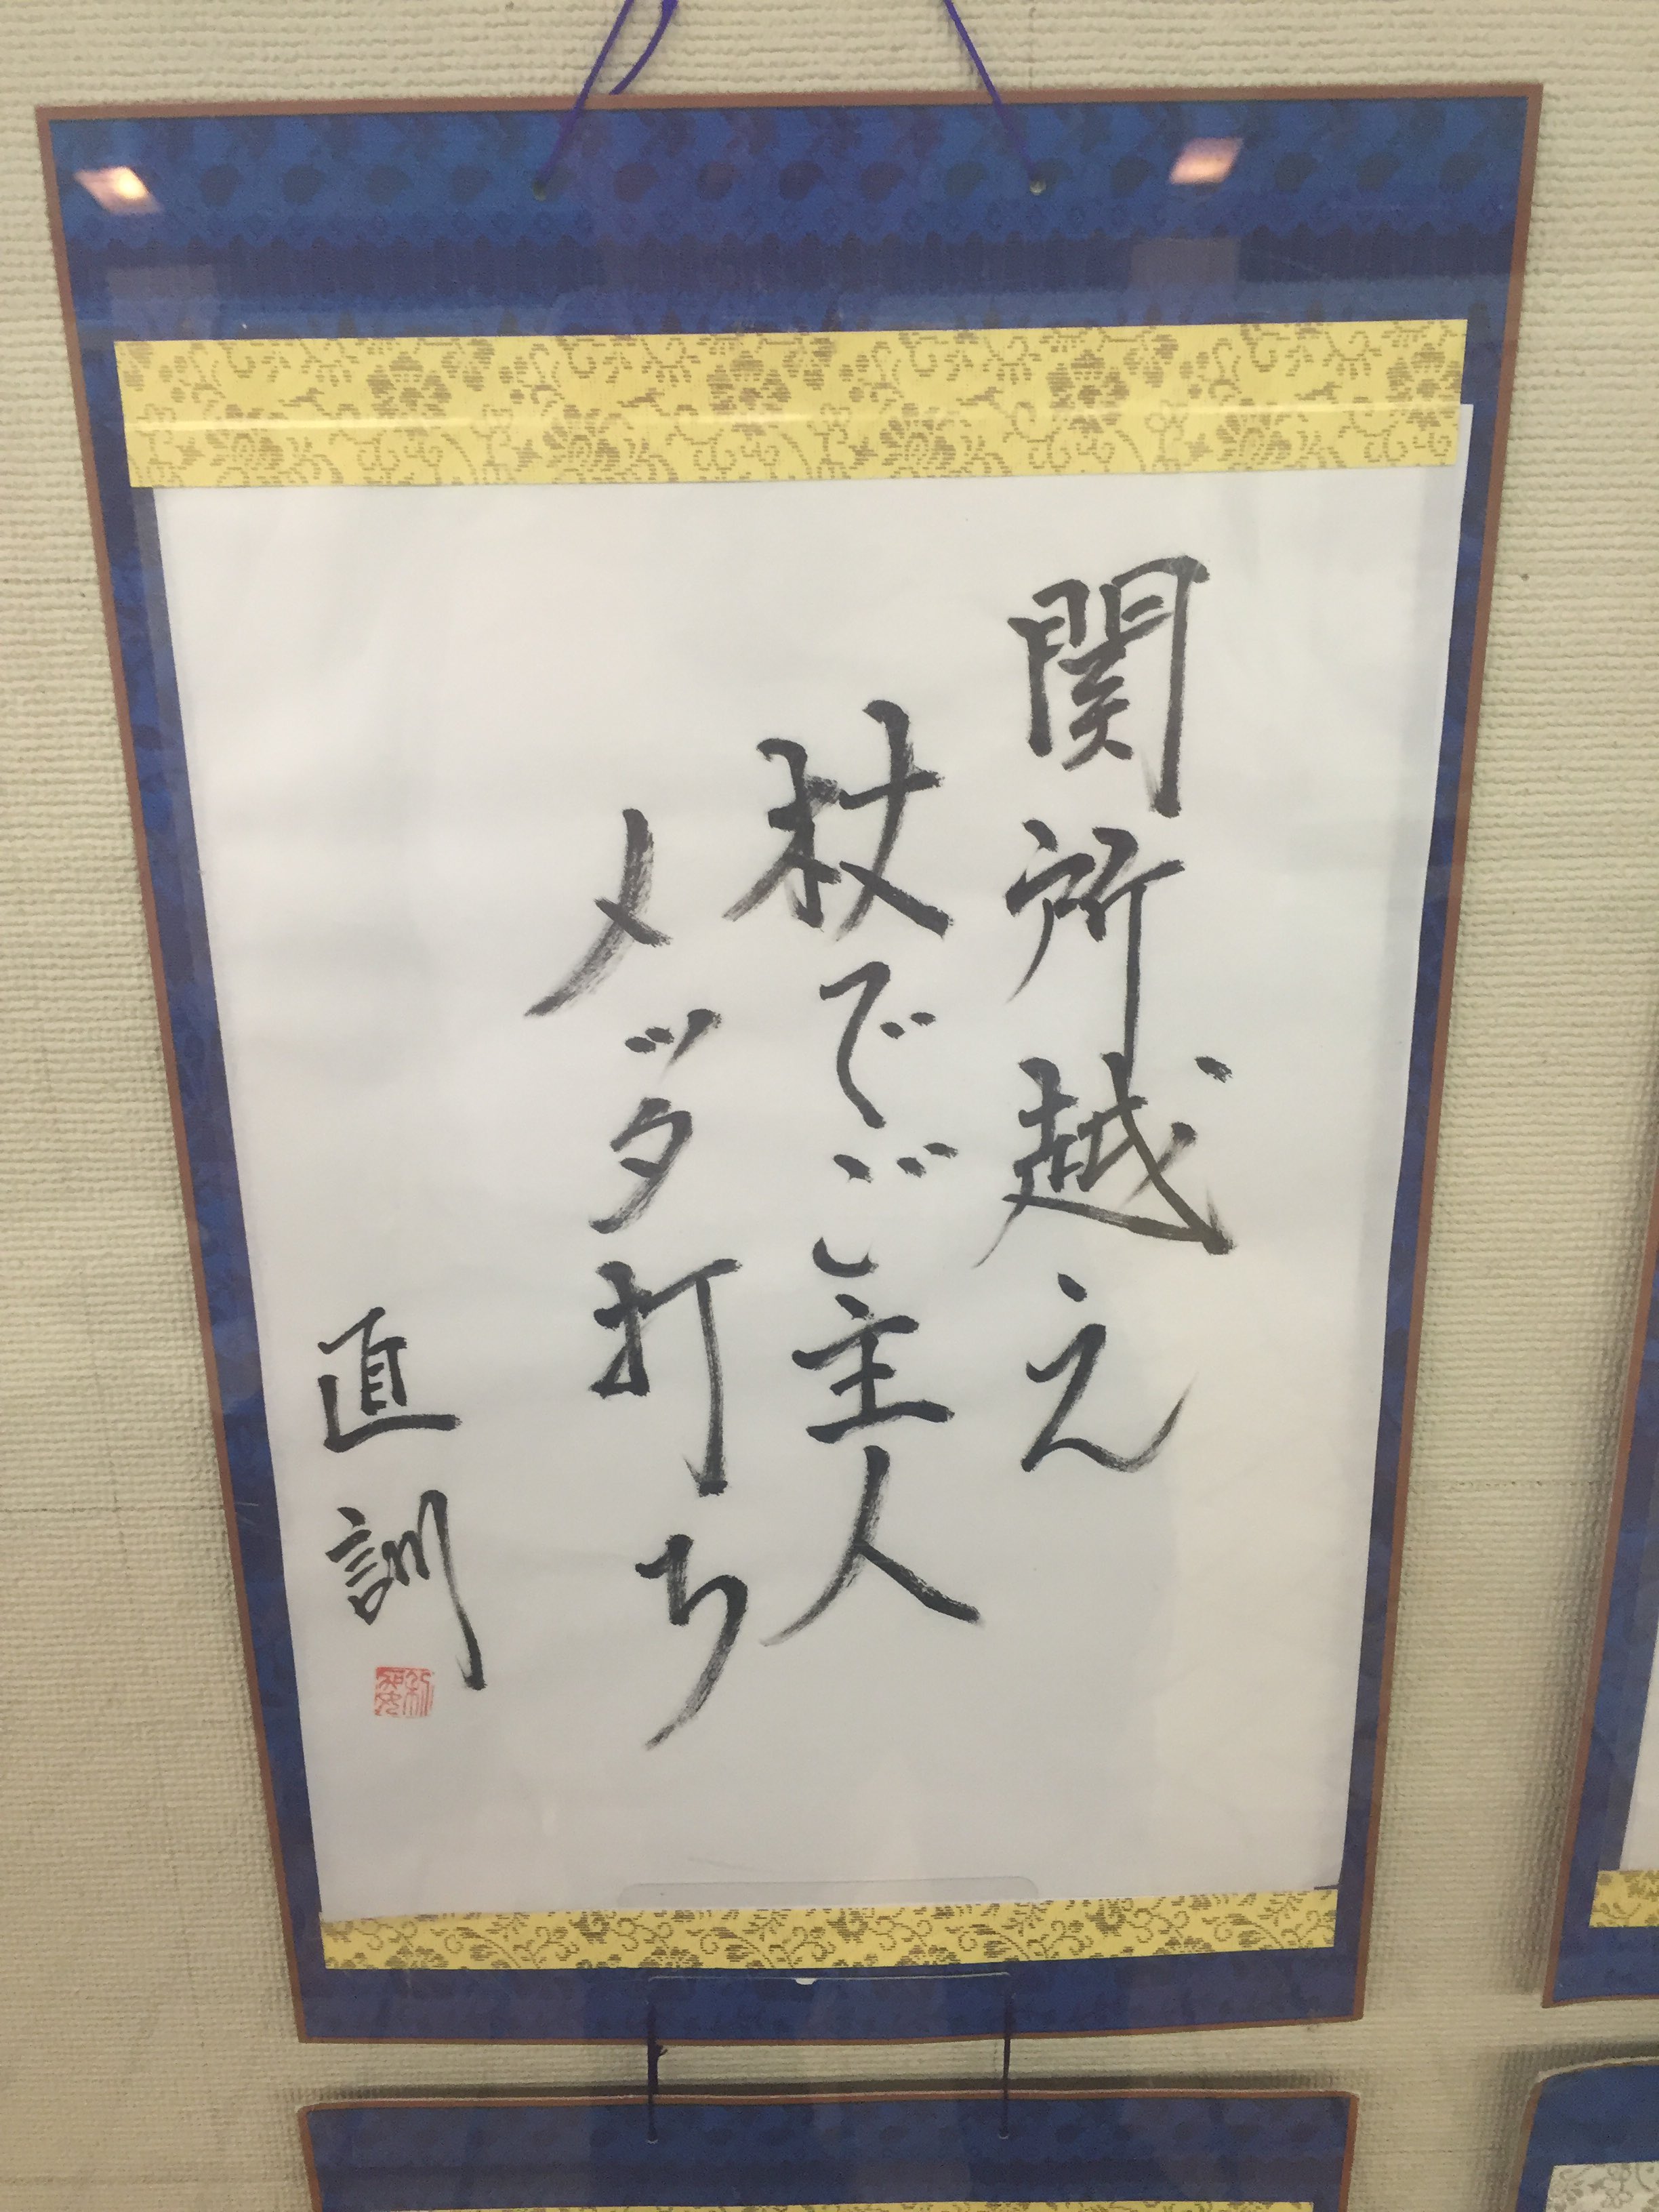 関所越え
杖でご主人
メッタ打ち
直訓